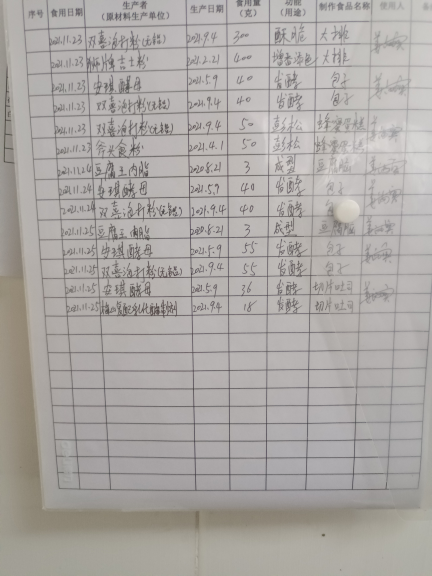 序号 食用日期 生产者（原材料生产单位） 生产日期 食用量（克） 功能（用途） 制作食品名称 使用人
2021.11.23 双喜泡打粉(无铝) 2021.9.4 300 酥脆 大排
2021.11.23 吉士粉 2021.2.21 400 增香 大排
2021.11.23 安琪酵母 2021.5.9 40 发酵 包子
2021.11.23 双喜泡打粉(无铝) 2021.9.4 40 发酵 包子
2021.11.23 双喜泡打粉(无铝) 2021.9.4 50 彭松 蜂蜜
2021.11.23 食粉 2021.4.1 50 彭松 蜂蜜
2021.11.24 豆腐王内脂 2020.8.21 3 成型 豆腐脑
2021.11.24 安琪酵母 2021.5.9 40 发酵 包子
2021.11.24 双喜泡打粉(无铝) 2021.9.4 40 发酵 包
2021.11.25 豆腐王内脂 2020.8.21 3 成型 豆腐脑
2021.11.25 安琪酵母 2021.5.9 55 发酵 包子
2021.11.25 双喜泡打粉(无铝) 2021.9.4 55 发酵 包子
2021.11.25 安琪酵母 2021.5.9 36 发酵 切片吐司
2021.11.25 2021.9.4 18 发酵 切片吐司